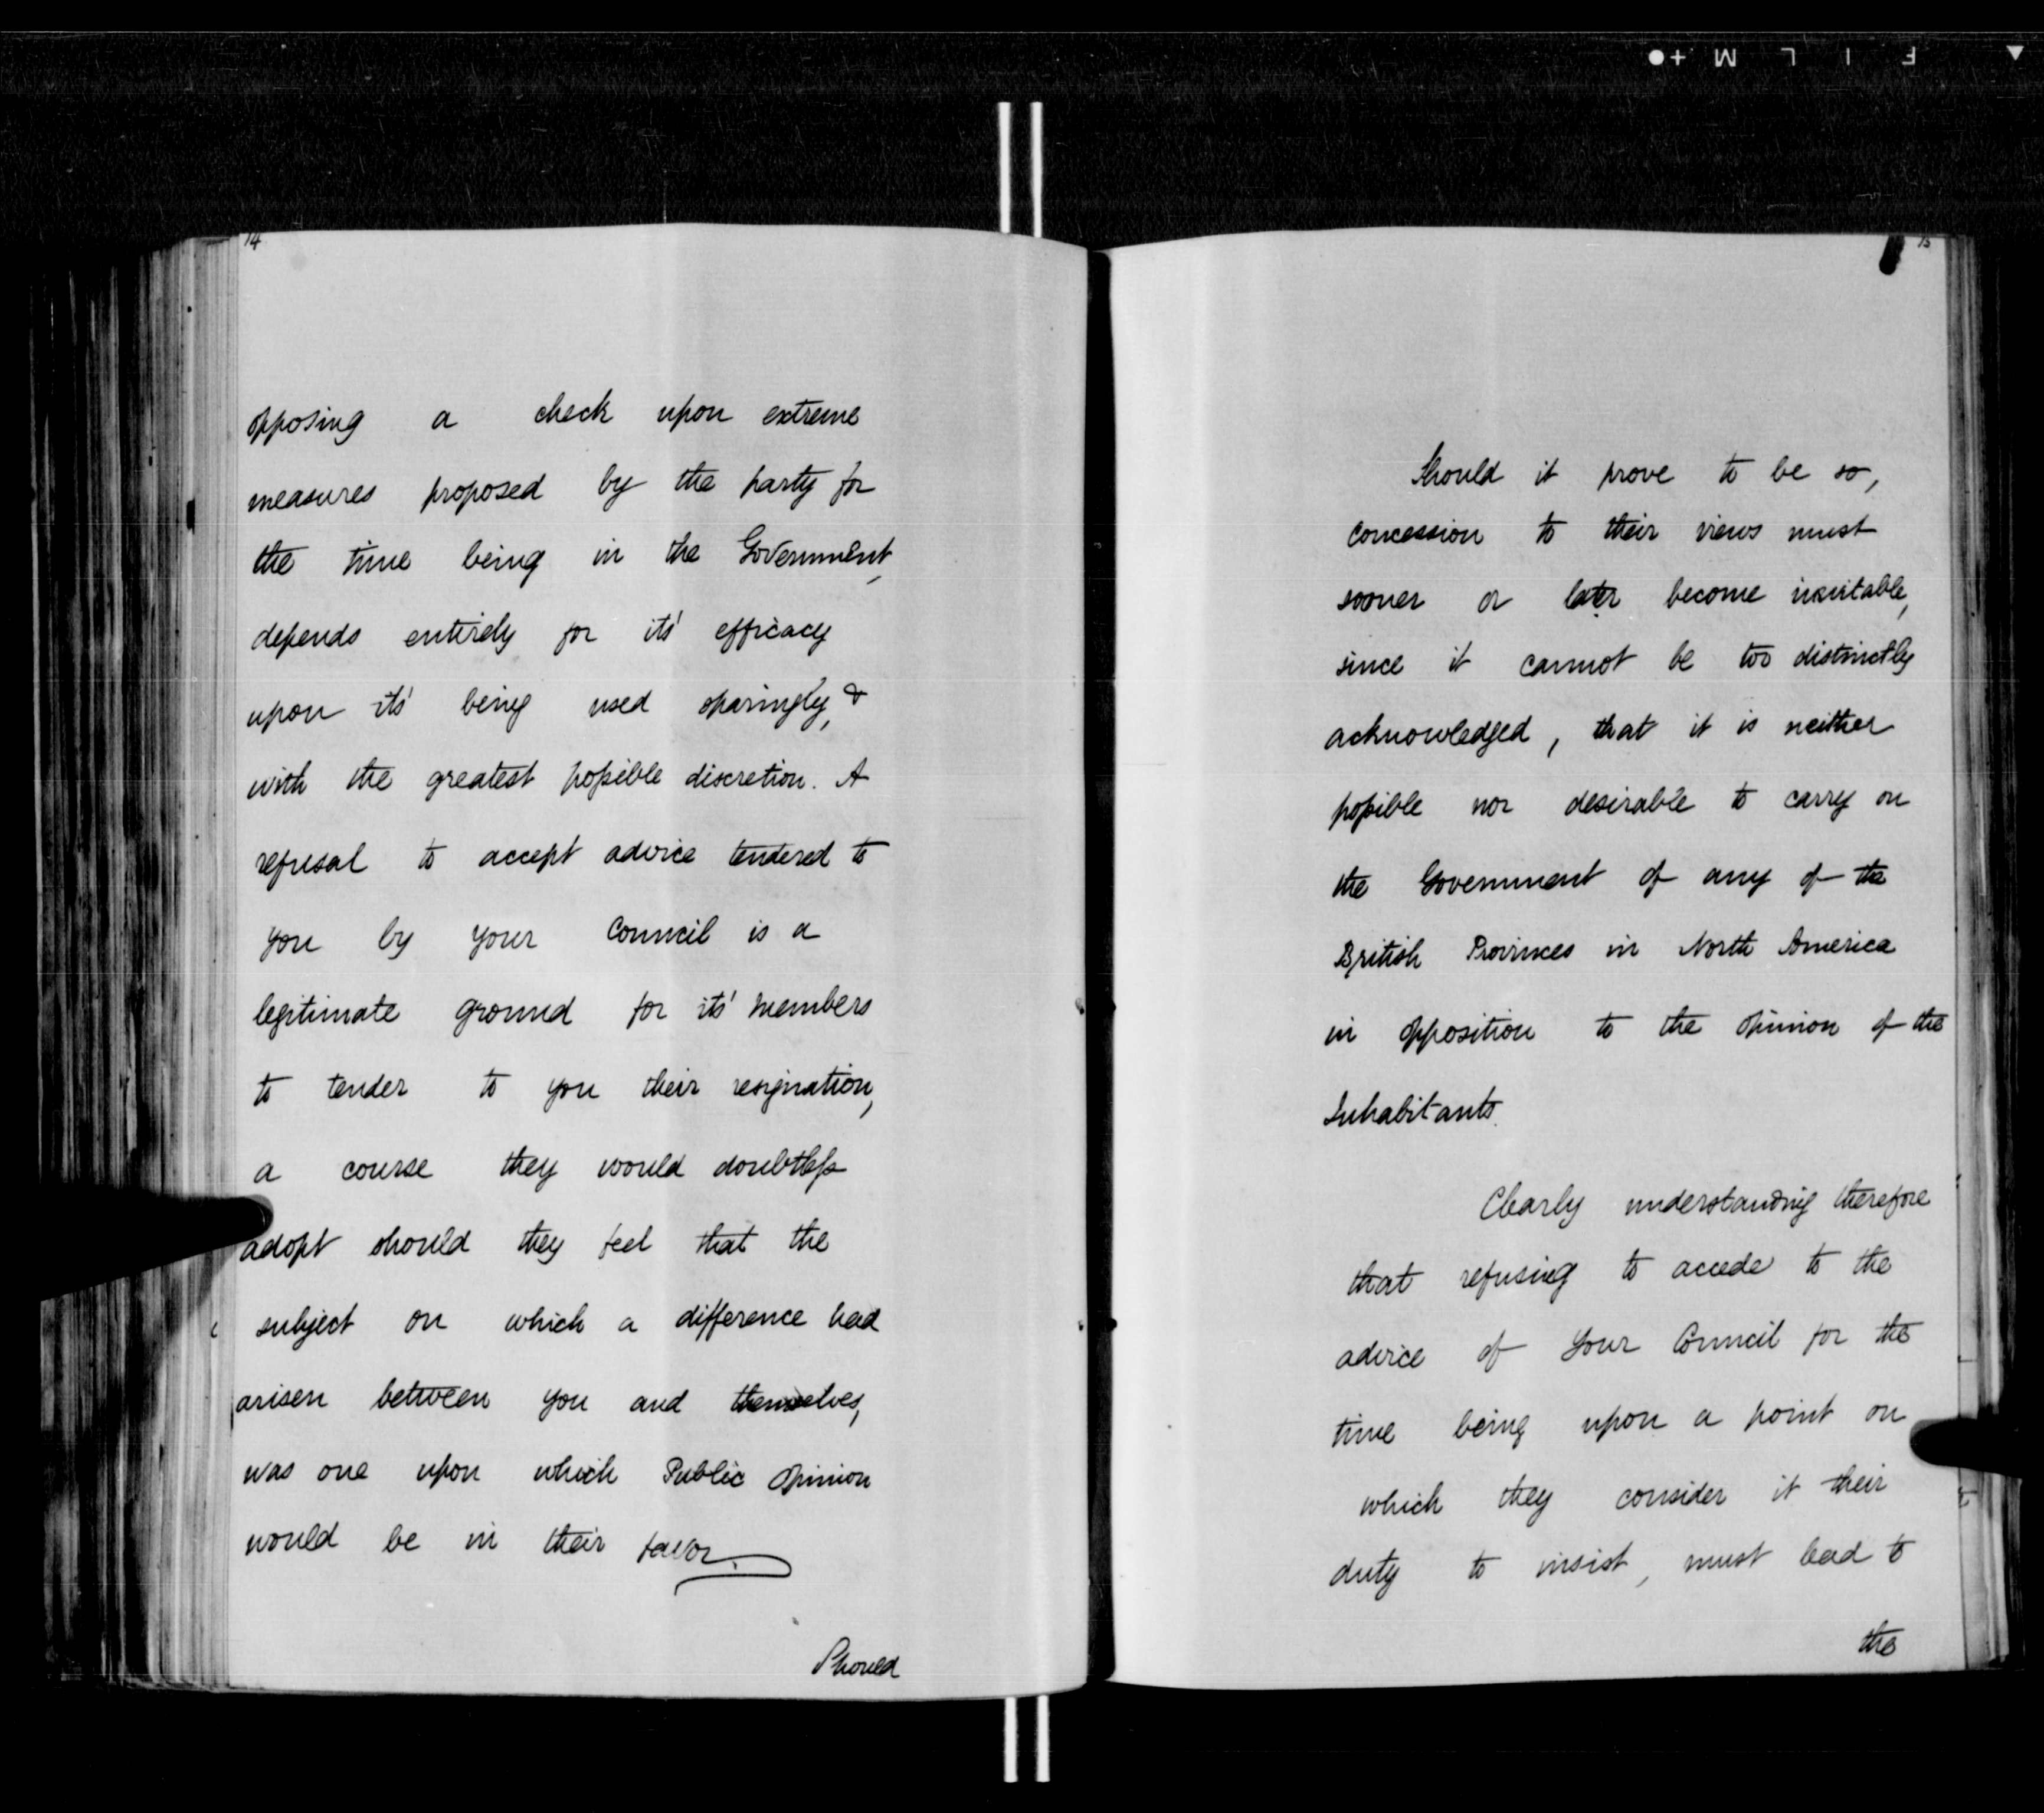 14
opposing a check upon extreme
measures proposed by the party for
the time being in the Government,
depends entirely for its' efficacy
upon its' being used sparingly, &
with the greatest possible discretion. A
refusal to accept advice tendered to
you by your Council is a
legitimate ground for its' members
to tender to you their resignation,
a course they would doubtless
adopt should they feel that the
subject on which a difference had
arisen between you and themselves,
was one upon which Public Opinion
would be in their favor.
Should
15
Should it prove to be so,
concession to their views must
sooner or later become inevitable,
since it cannot be too distinctly
acknowledged, that it is neither
possible nor desirable to carry on
the Government of any of the
British Provinces in North America
in opposition to the opinion of the
Inhabitants.
Clearly understanding therefore
that refusing to accede to the
advice of Your Council for the
time being upon a point on
which they consider it their
duty to insist, must lead to
the
FILM